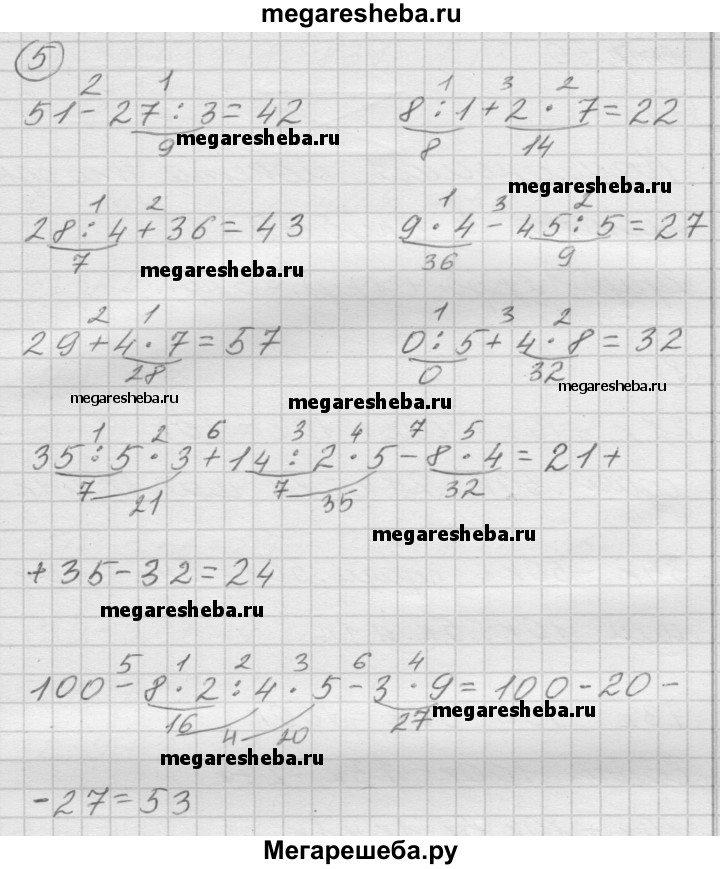 megaresheba.ru
5
2 1
51 - 27 : 3 = 42
9
megaresheba.ru
1 3 2
8 : 1 + 2 · 7 = 22
8 14
megaresheba.ru
1 2
28 : 4 + 36 = 43
7
megaresheba.ru
1 3 2
9 · 4 - 45 : 5 = 27
36 9
2 1
29 + 4 · 7 = 57
28
megaresheba.ru
megaresheba.ru
1 3 2
0 : 5 + 4 · 8 = 32
0 32
megaresheba.ru
1 2 6 3 4 7 5
35 : 5 · 3 + 14 : 2 · 5 - 8 · 4 = 21 +
7 21 7 35 32
megaresheba.ru
+ 35 - 32 = 24
megaresheba.ru
5 1 2 3 6 4
100 - 8 · 2 : 4 · 5 - 3 · 9 = 100 - 20 -
16 4 20 27
megaresheba.ru
megaresheba.ru
- 27 = 53
Мегарешеба.ру